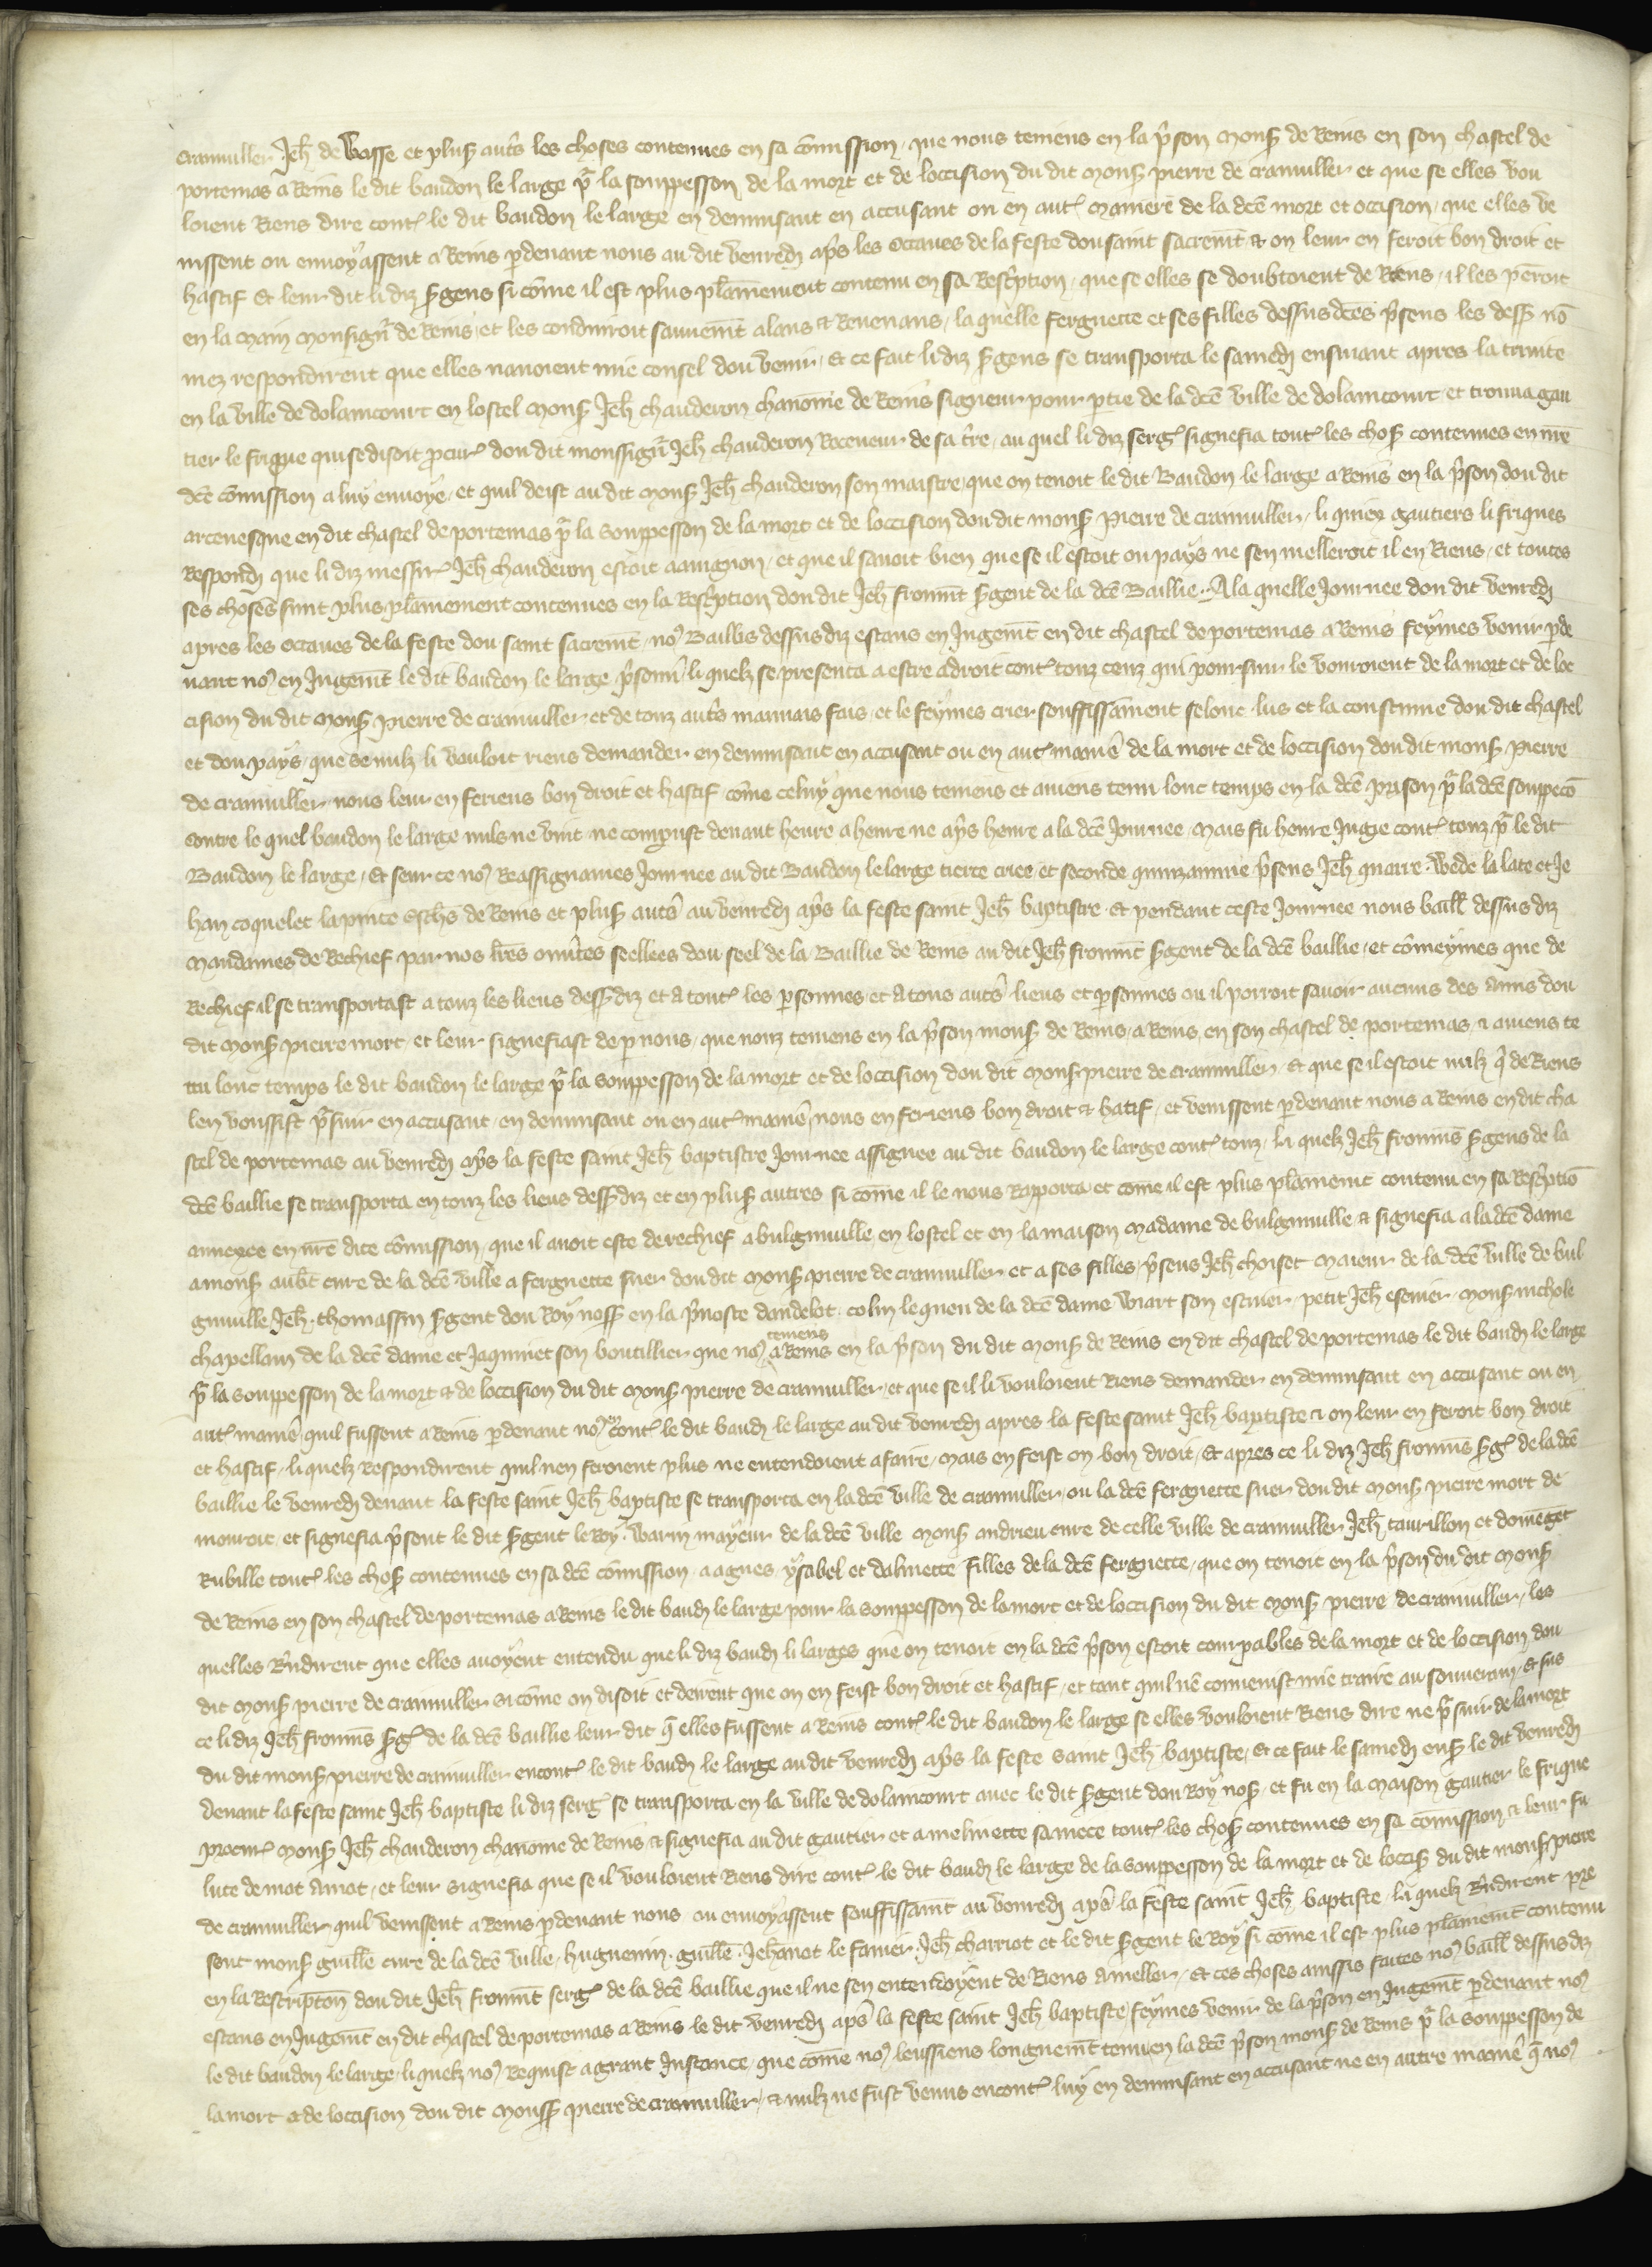 Crainviller Jeh̄ de Wasse et plus̉ autrs̉ les choses contenues en sa cōmission, que nous teniens en la p̉son Mons̉ de Reins en son chastel de
portemas a Reins le dit baudon le large pr̉ la souppesson de la mort et de loccision du dit Mons̉ pierre de crainviller et que se elles vou
loient Riens dire cont̉ le dit baudon le large en denunsant en accusant ou en aut̉ maniere de la dcē mort et occision, que elles ve
nissent ou envoyassent a Reins pdevant nous au dit venredi ap̄s les octaves de la feste dou saint sacremt̄ & on leur en feroit bon droit et
hastif Et leur dit li diz s̉gens si cōme il est plus plainnement contenu en sa Rescription, que se elles se doubtoient de Riens, il les penroit
en la Main Monsign̉ de Reins, et les conduiroit sauvemt̄ alans & Revenans, la quelle Ferguette et ses filles dessus dcēs p̉sens les dess̉ nō
mez respondirent que elles navoient mie consel dou venir, Et ce fait li diz s̉gens se transporta le samedi ensuiant apres la trinite
en la ville de dolaincourt en lostel Mons̉ Jeh̄ chauderon chanoine de Reins signeur pour ptie de la dcē ville de dolaincourt et trouva gau
tier le frique qui se disoit procur̉ dou dit monssign̉ Jeh̄ chauderon Receveur de sa tr̄re, au quel li diz serg̉ signefia tout̉ les chos̉ contenues en nr̄e
dcē cōmission a luy envoye, et quil deist au dit mons̉ Jeh̄ chauderon son maistre, que on tenoit le dit Baudon le large a Reins en la p̉son dou dit
arcevesque en dit chastel de portemas pr̉ la souppesson de la mort et de loccision dou dit mons̉ pierre de crainviller, li quiex gautiers li friques
Respondi que li diz messir̉ Jeh̄ chauderon estoit a avignon, et que il savoit bien que se il estoit ou pays ne sen melleroit il en Riens, et toutes
ses choses sunt plus plainnement contenues en la Rescription dou dit Jeh̄ fromīt s̉gent de la dcē Baillie. A la quelle Journee dou dit venredi
apres les octaves de la feste dou saint sacremt̄, no9 Baillis dessus diz estans en Jugemt̄ en dit chastel de portemas a Reins feymes venir pde
vant no9 en Jugemt̄ le dit baudon le large p̉sonn̉ li quelz se presenta a estre a droit cont̉ touz ceuz qui poursuir le vouroient de la mort et de loc
cision du dit Mons̉ pierre de crainviller et de touz autrs̉ mauvais fais, et le feymes crier souffissāment selonc lus et la coustume dou dit chastel
et dou pays, que se nulz li vouloit riens demander en denunsant en accusant ou en aut̉ maniẻ de la mort et de loccision dou dit mons̉ pierre
de crainviller, nous leur en feriens bon droit et hastif cōme celuy que nous teniens et aviens tenu lonc temps en la dcē prison pr̉ la dcē souppecō
contre le quel baudon le large nuls ne vint ne comparust devant heure a heure ne ap̄s heure a la dcē Journee, Mais fu heure Jugie cont̉ touz pr̉ le dit
Baudon le large, Et seur ce no9 Reassignames Journee au dit Baudon le large tierce criee et seconde quinzainne p̉sens Jeh̄ quarre. Wede la late et Je
han coquelet lapince eschēs de Reins et plus̉ autrs̉ au venredi ap̄s la feste saint Jeh̄ baptistre. Et pendant ceste Journee nous baill̄ dessus diz
Mandames de Rechief par nos lr̄es ouv̉tes seellees dou seel de la Baillie de Reins au dit Jeh̄ fromīt s̉gent de la dcē baillie, et cōmeymes que de
Rechief il se transportast a touz les lieus dess̉ diz et a tout̉ les personnes et a tous autrs̉ lieus et personnes ou il porroit savoir aucuns des Amis dou
dit Mons̉ pierre mort et leur signefiast de p nous, que nouz teniens en la p̉son mons̉ de Reins, a Reins, en son chastel de portemas, & aviens te
nu lonc temps le dit baudon le large pr̉ la souppesson de la mort et de loccision dou dit Mons̉ pierre de crainviller, Et que se il estoit nulz q̉ de Riens
len voussist p̉suir en accusant, en denunsant ou en aut̉ maniẻ nous en feriens bon droit & hatif, et venissent pdevant nous a Reins en dit cha
stel de portemas au venredi ap̄s la feste saint Jeh̄ baptistre Journee assignee au dit baudon le large cont̉ touz, li quelz Jeh̄ fromīs s̉gens de la
dcē baillie se transporta en touz les lieus dess̉ diz et en plus̉ autres si cōme il le nous Rapporta et cōme il est plus plainnemt̄ contenu en sa Rescriptiō
annexee en nr̄e dite cōmission, que il avoit este de rechief a bulginville en lostel et en la maison Madame de bulginville & signefia a la dcē dame
a mons̉ aubt̄ cure de la dcē ville a ferguette suer dou dit Mons̉ pierre de crainviller et a ses filles, p̉sens Jeh̄ choiset Maieur de la dcē ville de bul
ginville, Jeh̄. thomassin s̉gent dou Roy noss̉ en la p̉voste dandelot. colin le queu de la dcē dame Wiart son escuier, petit Jeh̄ escuier, Mons̉ nichole
chapellain de la dcē dame et Jaquinet son boutillier que no9 teniens a Reins en la p̉son du dit Mons̉ de Reins en dit chastel de portemas le dit baudn̄ le large
pr̉ la souppesson de la mort & de loccision du dit Mons̉ pierre de crainviller, et que se il li vouloient Riens demander en denunsant en accusant ou en
aut̉ maniẻ quil fussent a Reins pdevant no9 cont̉ le dit baudn̄ le large au dit venredi apres la feste saint Jeh̄ baptiste & on leur en feroit bon droit
et hastif, li quelz Respondirent quil nen feroient plus ne entendoient a faire, Mais en feist on bon droit, Et apres ce li diz Jeh̄ fromīs s̉g̉ de la dcē
baillie le venredi devant la feste saint Jeh̄ baptiste se transporta en la dcē ville de crainviller, ou la dcē ferguette suer dou dit Mons̉ pierre mort de
mouroit, et signefia p̉sent le dit s̉gent le Roy. Warin mayeur de la dcē ville Mons̉ andrieu cure de celle ville de crainviller Jeh̄ taurillon et domēget
Rubille tout̉ les chos̉ contenues en sa dcē cōmission a agnes ysabel et dalmette Filles de la dcē ferguette, que on tenoit en la p̉son du dit Mons̉
de Reins en son chastel de portemas a Reins le dit baudn̄ le large pour la souppesson de la mort et de loccision du dit Mons̉ pierre de crainviller, les
quelles R̄ndirent que elles avoyent entendu que li diz baudn̄ li larges que on tenoit en la dcē p̉son estoit coupables de la mort et de loccision dou
dit Mons̉ pierre de crainviller si cōme on disoit et deirent que on en feist bon droit et hastif, et tant quil nē convenist mie traire au souverain, Et sus
ce li diz Jeh̄ fromīs s̉g̉ de la dcē baillie leur dit q̄ elles fussent a Reins cont̉ le dit baudon le large se elles vouloient Riens dire ne pr̉suir de la mort
du dit mons̉ pierre de crainviller encont̉ le dit baudn̄ le large au dit venredi ap̄s la feste saint Jeh̄ baptiste, Et ce fait le samedi ens̉ le dit venredi
devant la feste saint Jeh̄ baptiste li diz serg̉ se transporta en la ville de dolaincourt avec le dit s̉gent dou Roy nos̉, et fu en la Maison gautier le frique
procur̉ Mons̉ Jeh̄ chauderon chanoine de Reins & signefia au dit gautier et a melinette sa niece tout̉ les chos̉ contenues en sa cōmission & leur fu
lute de mot a mot, et leur signefia que se il vouloient Riens dire cont̉ le dit baudn̄ le large de la souppesson de la mort et de loccis̉ du dit mons̉ pierre
de crainviller quil venissent a Reins pdevant nous ou envoyassent souffissāmt au venredi ap̄s la feste saint Jeh̄ baptiste, li quelz R̄ndirent pre
sent mons̉ guill̄e cure de la dcē ville, huguenin. guill̄e. Jehānot le fanier. Jeh̄ charriot et le dit s̉gent le Roy si cōme il est plus plainnemt̄ contenu
en la Rescripton̄ dou dit Jeh̄ fromīt serg̉ de la dcē baillie que il ne sen entendoyent de Riens a meller, Et ces choses anssis faites no9 baill̄ dessus diz
estans en Jugemt̄ en dit chastel de portemas a Reins le dit venredi ap̄s la feste saint Jeh̄ baptiste, feymes venir de la p̉son en Jugemt̄ pdevant no9
le dit baudon le large, li quelz no9 Requist a grant Instance, que cōme no9 leussiens longuemt̄ tenu en la dcē p̉son mons̉ de Reins pr̉ la souppesson de
la mort & de loccision dou dit Mons̉ pierre de crainviller, & nulz ne fust venus encont̉ luy en denunsant en accusant ne en autre maniẻ q̄ no9